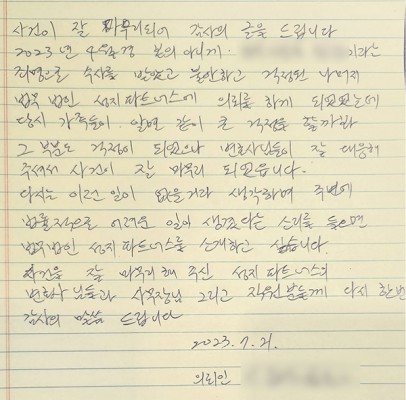 사건이 잘 마무리되어 감사의 글을 드립니다
2023년 4월경 본의 아니게 이라는
죄명으로 수사를 받았고 불안하고 걱정된 나머지
법무법인 성지파트너스에 의뢰를 하게 되었었는데
당시 가족들이 알면 같이 큰 걱정을 할까봐
그 부분도 걱정이 되었으나 변호사님들이 잘 대응해
주셔서 사건이 잘 마무리 되었습니다.
다시는 이런일이 없을거라 생각하며 주변에
법률적으로 어려운 일이 생겼다는 소리를 들으면
법무법인 성지파트너스를 소개하고 싶습니다.
사건을 잘 마무리해 주신 성지파트너스의
변호사님들과 사무장님 그리고 직원분들께 다시 한번
감사의 말씀 드립니다
2023. 7. 21.
의뢰인